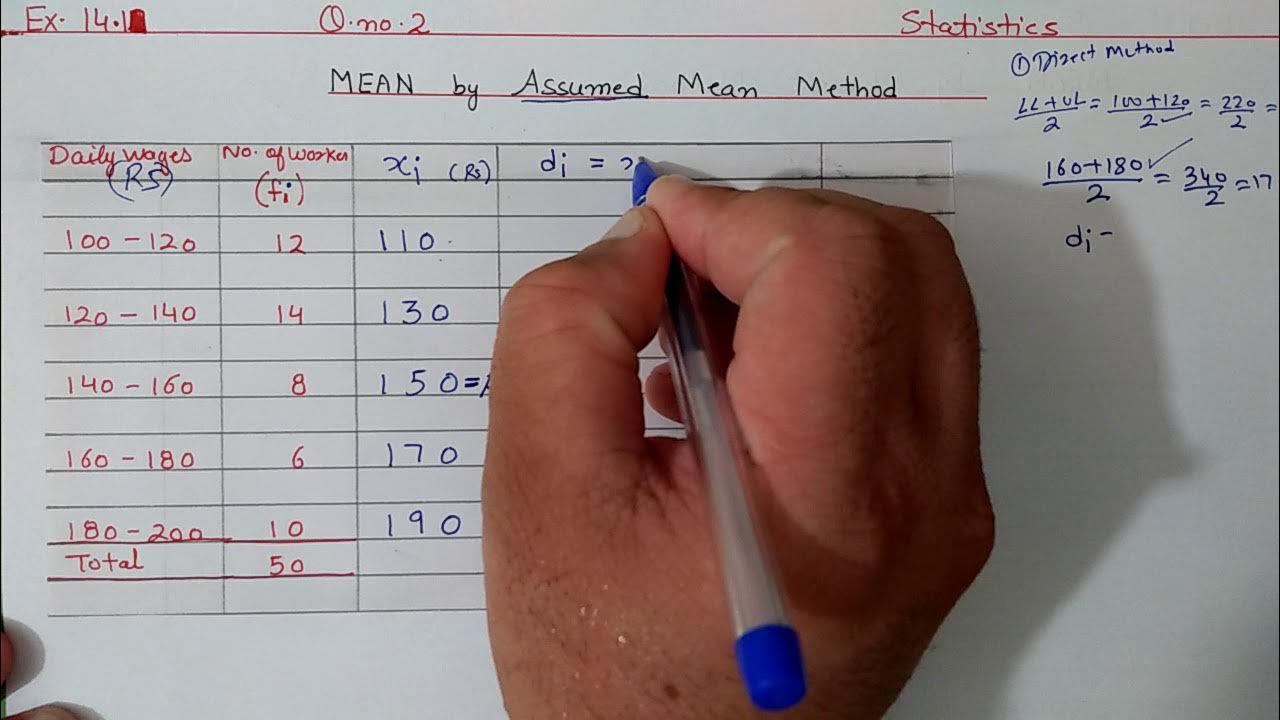 Ex. 14.1 Q.no.2 Statistics
MEAN by Assumed Mean Method
① Direct Method
LL+UL/2 = 100+120/2 = 220/2 =
160+180/2 = 340/2 = 17
di -
Daily wages (Rs) No. of worker (fi) xi (Rs) di = x
100 - 120 12 110
120 - 140 14 130
140 - 160 8 150 =
160 - 180 6 170
180 - 200 10 190
Total 50